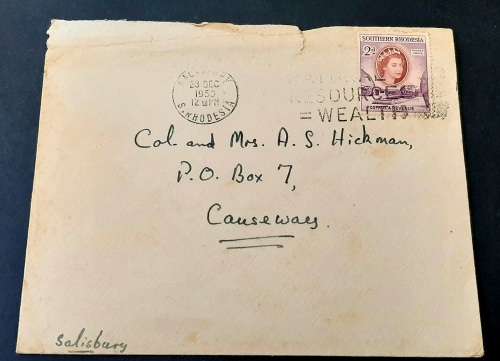 SOUTHERN RHODESIA
2d
23 DEC
1953
12 PM
S. RHODESIA
= WEALTH
Col. and Mrs. A. S. Hickman,
P. O. Box 7,
Causeway.
Salisbury